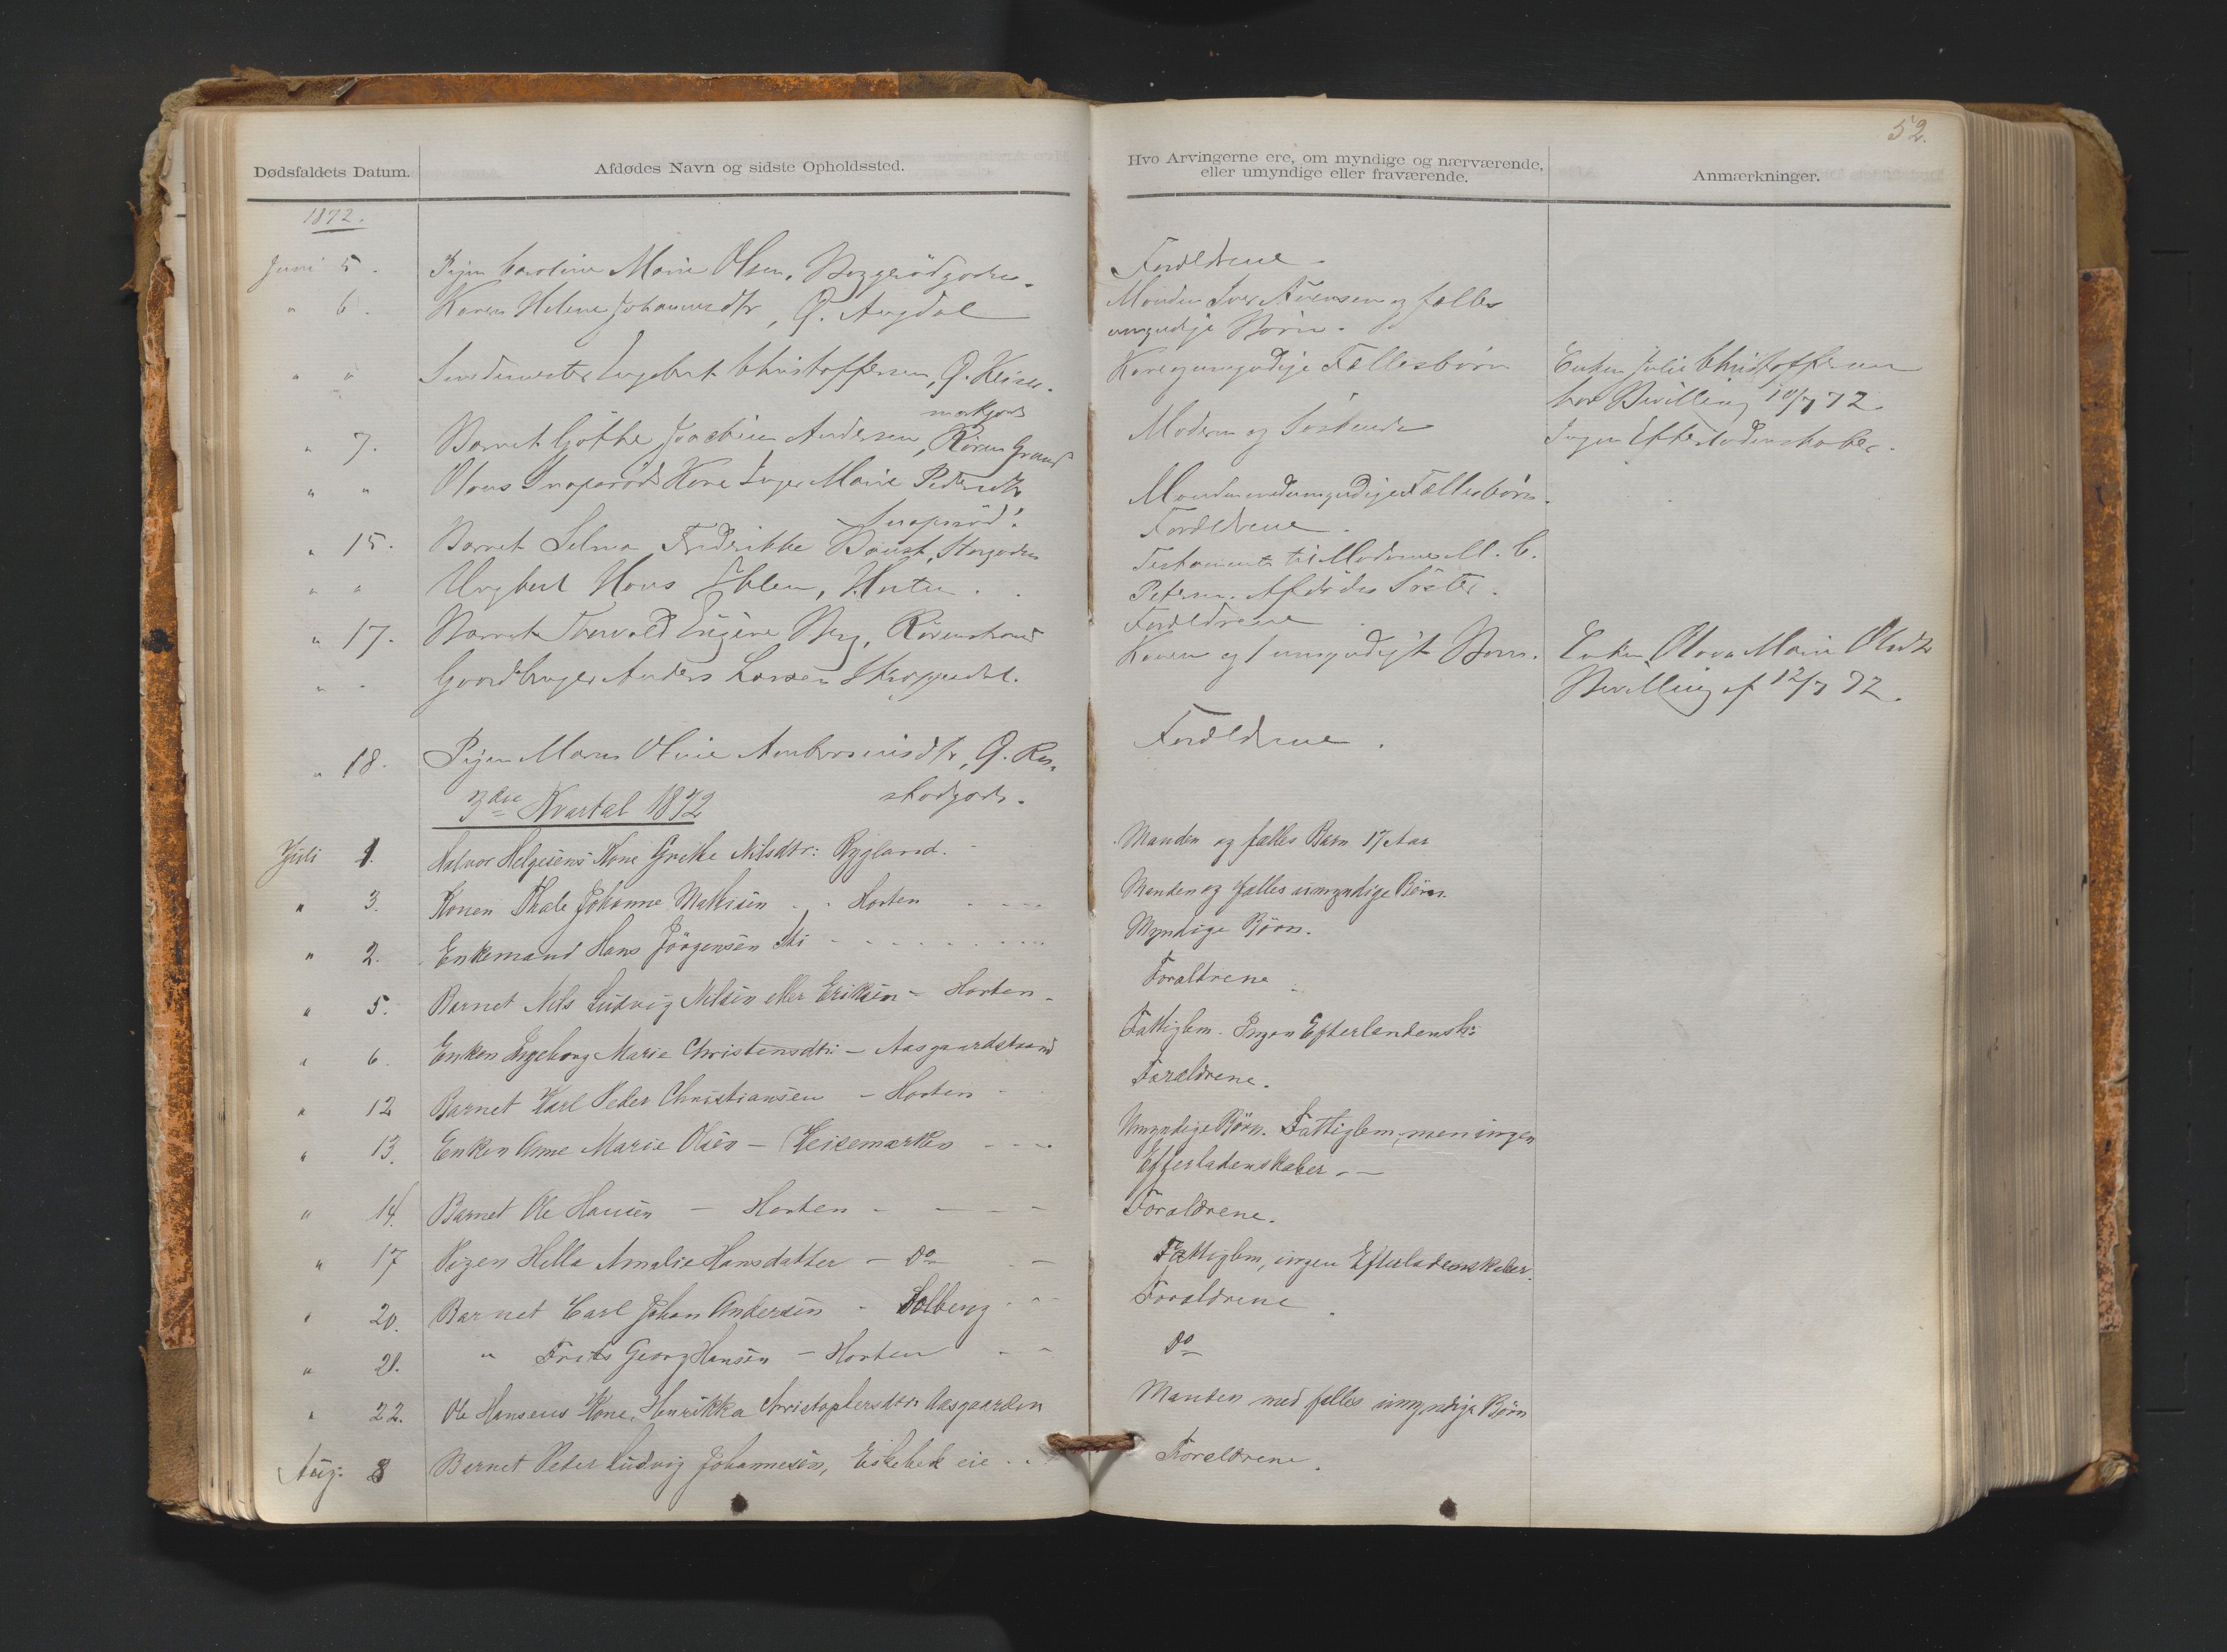 52.
Dødsfaldets Datum.
Afdødes Navn og sidste Opholdssted.
Hvo Arvingerne ere, om myndige og nærværende,
eller umyndige eller fraværende.
Anmærkninger.
1872.
Juni 5. Pigen Caroline Marie Olsen, Forældrene.
" 6. Karen Helene Johannesdtr, G. Augdal Manden Iver Iversen og fælles
umyndige Børn.
" " Ingebret Christoffersen, G. Keise- Kone og umyndige Fællesbørn Enken Julie Christoffersen
markgods har Bevilling 10/7 72
" 7. Barnet Göthe Joachim Andersen, Røren Grund Moderen og Søskende Ingen Efterladenskaber.
" " Olaus Snaparøds Kone Inger Marie Pedersdtr Manden med umyndige Fællesbørn.
Snaparød.
" 15. Barnet Selma Fredrikke Forældrene.
" " Ungkarl Hans Ihlen, Horten. Testamente til M. C.
Petersen. Afdødes Søster.
" 17. Barnet Thorvald Eugene Berg, Rørenstrand Forældrene
" " Gaardbruger Anders Larsen Skoppendal. Konen og 1 umyndigt Barn. Enken Olava Marie Olsdtr
Bevilling af 12/7 72.
" 18. Pigen Maren Oline Ambrosiusdtr, G. Ra- Forældrene.
stadgods.
3die Kvartal 1872
Juli 1. Halvor Helgesens Kone Grethe Nilsdtr: Rygland. Manden og fælles Barn 17 Aar
" 3. Konen Thale Johanne Mathisen - Horten Manden og fælles umyndige Børn.
" 2. Enkemand Hans Jörgensen Ski Myndige Börn.
" 5. Barnet Nils Ludvig Nilsen eller Eriksen - Horten - Forældrene
" 6. Enken Ingeborg Marie Christensdtr: - Aasgaardstrand Fattiglem. Ingen Efterladensk:
" 12 Barnet Karl Peder Christiansen - Horten - Forældrene.
" 13. Enken Anne Marie Olsen - Keisemarken - - - Umyndige Börn. Fattiglem, men ingen
Efterladenskaber. -
" 14. Barnet Ole Hansen - Horten - - - - Forældrene.
" 17 Pigen Hella Amalie Hansdatter - Do - Fattiglem, ingen Efterladenskaber.
" 20. Barnet Carl Johan Andersen - Solberg - - Forældrene.
" 21. " Frits Georg Hansen - Horten - - Do
" 22. Ole Hansens Kone, Henrikka Christophersdtr: Aasgaarden Manden med fælles umyndige Börn
Aug: 8 Barnet Peder Ludvig Johannesen, Eskebek eie Forældrene.